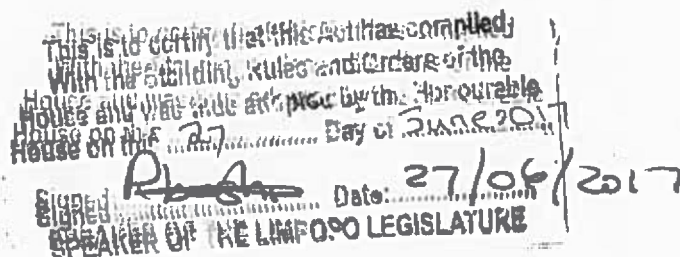 This is to certify that this Act Has complied
With the standing Rules and Orders of the
House and was duly adopted by the Honourable
House on this 27 Day of June 2017
Signed Date: 27/06/2017
SPEAKER OF THE LIMPOPO LEGISLATURE